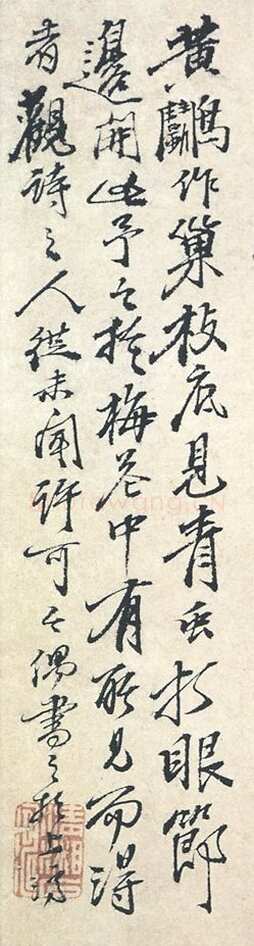 黄鸝作巢枝底見青虫於眼節
邊開此予之於梅花中有所見而得
者觀詩之人從未聞許可之偶書之於上